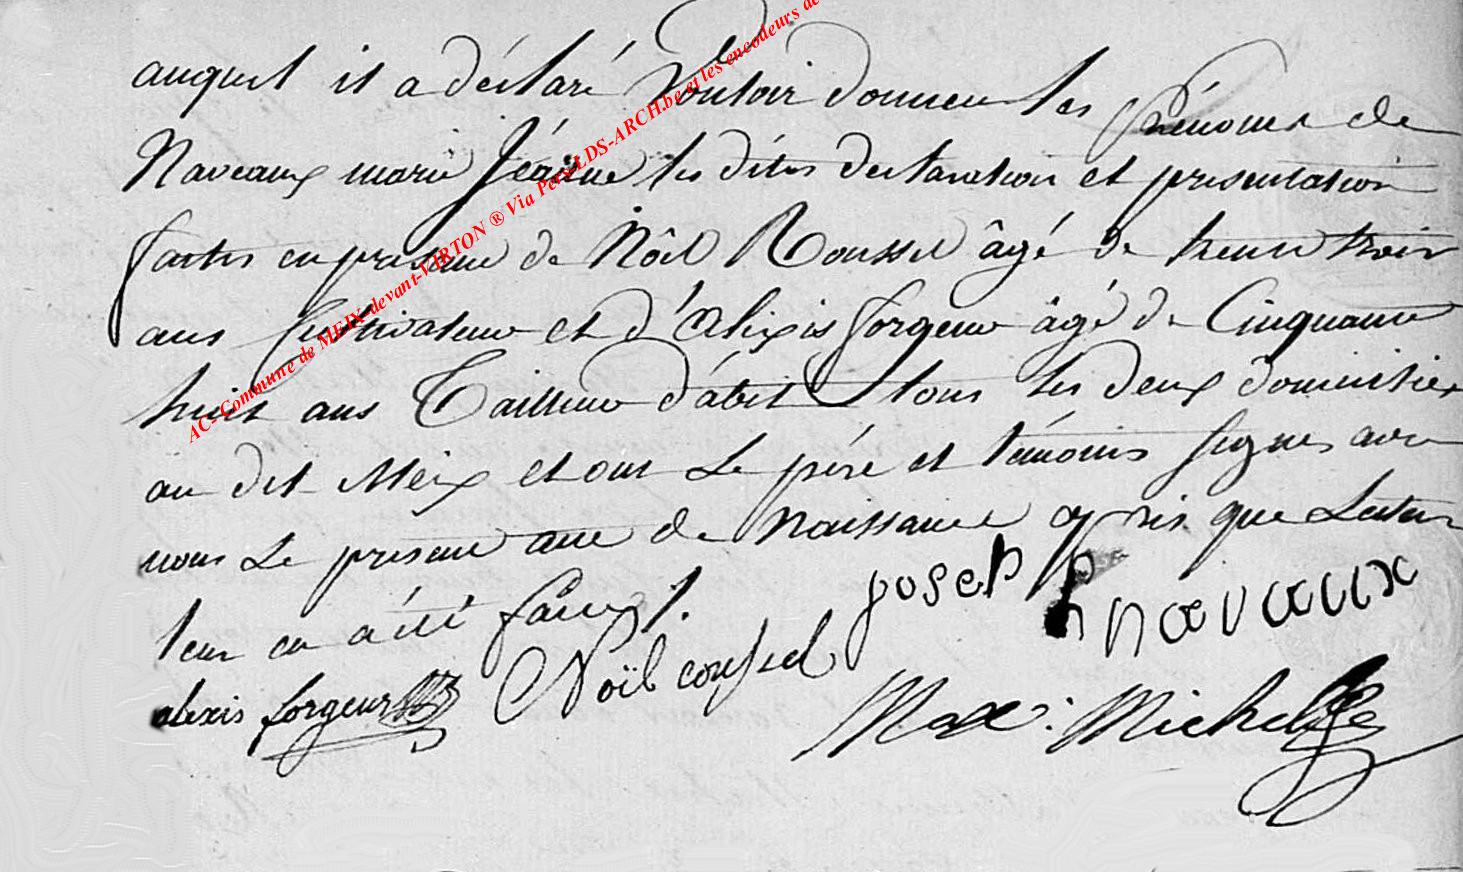 auquel il a déclaré Vouloir donner les Prénoms de
Naveaux marie Jéanne les dites declaration et presentation
faites en presence de Nôel Roussel âgé de trente trois
ans Cultivateur et d'Alixis forgeur âgé de Cinquante
huit ans Tailleur d'abit tous les deux domicilies
au dit Meix et ont Le pére et témoins signes avec
nous Le present acte de Naissance apres que Lecture
leur en a été faite.
joseph navaux
alexis forgeur Noël roussel
Max: Michel
AC-Commune de MEIX-devant-VIRTON ® Via Pers LDS-ARCH.be et les encodeurs de